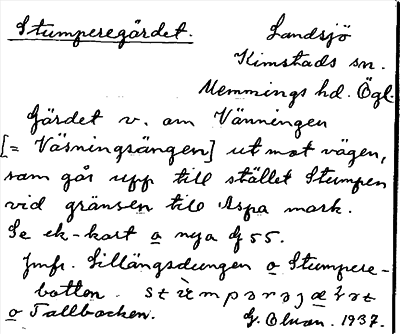 Stumperegärdet.
Landsjö
Kimstads sn.
Memmings hd. Ögl.
Gärdet v. om Vänningen
[= Väsningsängen] ut mot vägen,
som går upp till stället Stumpen
vid gränsen till Aspa mark.
Se ek-kart o nya 55.
Jmfr. Lillängsdungen o Stumpere-
botten.
o Tallbacken. G. Olsson. 1937.